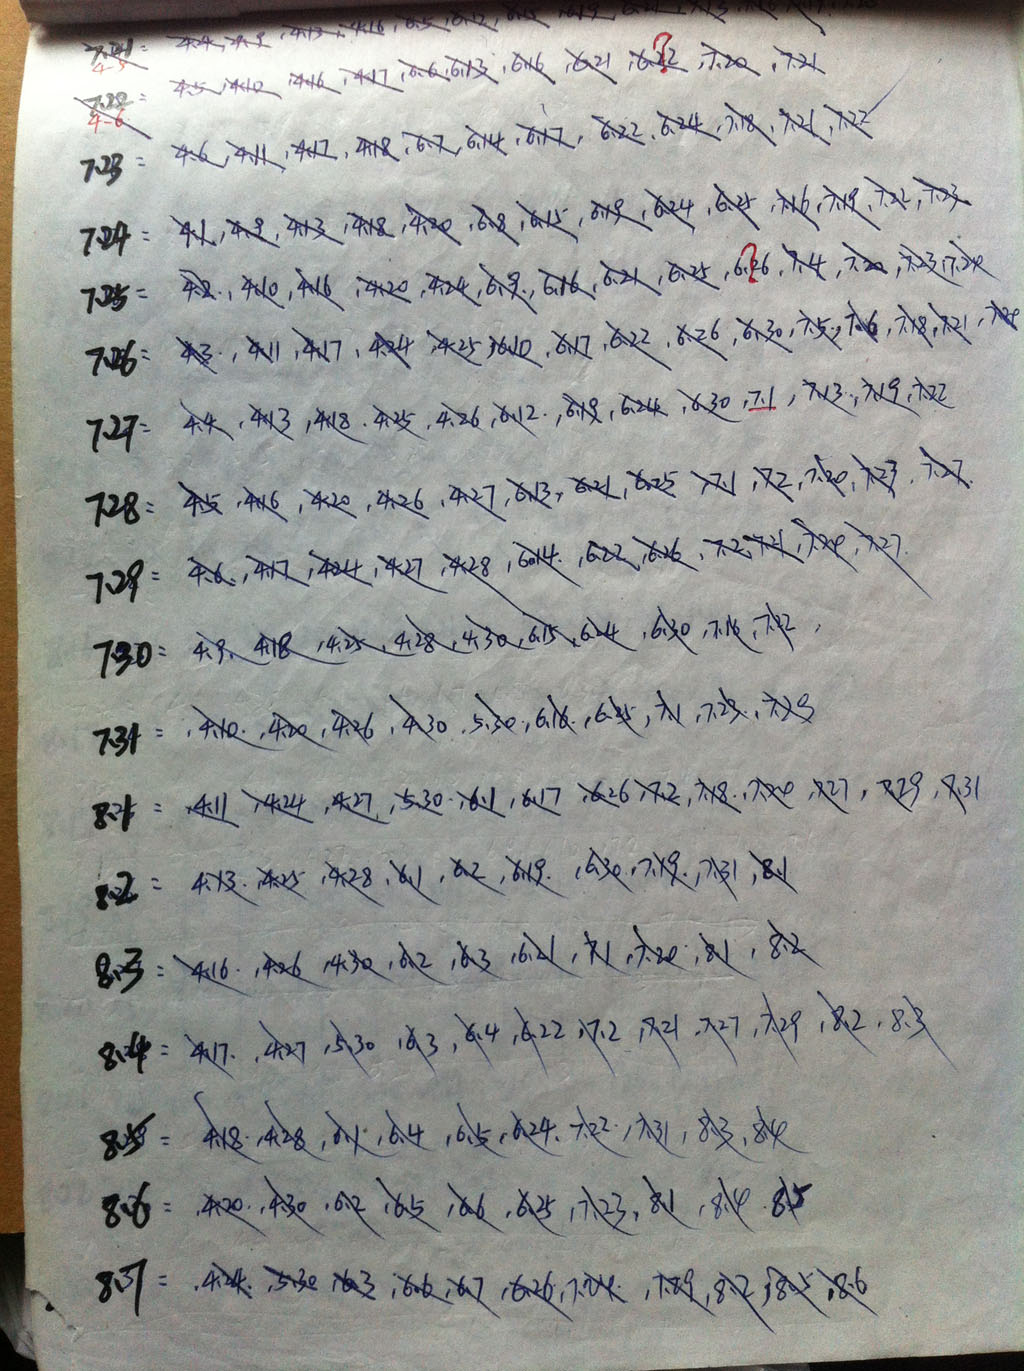 7.21= 4.4, 4.9, 4.13, 4.16, 6.5, 6.12, 6.15, 6.19,
4-5
7.22= 4.5, 4.10, 4.16, 4.17, 6.6, 6.13, 6.16, 6.21, 6.22, 7.20, 7.21
4-6 ?
7.23= 4.6, 4.11, 4.17, 4.18, 6.7, 6.14, 6.17, 6.22, 6.24, 7.18, 7.21, 7.22
7.24= 4.1, 4.9, 4.13, 4.18, 4.20, 6.8, 6.15, 6.19, 6.24, 6.25, 7.16, 7.19, 7.22, 7.23
7.25= 4.2, 4.10, 4.16, 4.20, 4.24, 6.9, 6.16, 6.21, 6.25, 6.26, 7.4, 7.20, 7.23, 7.24
?
7.26= 4.3, 4.11, 4.17, 4.24, 4.25, 6.10, 6.17, 6.22, 6.26, 6.30, 7.5, 7.6, 7.18, 7.21,
7.27= 4.4, 4.13, 4.18, 4.25, 4.26, 6.12, 6.19, 6.24, 6.30, 7.1, 7.13, 7.19, 7.22
7.28= 4.5, 4.16, 4.20, 4.26, 4.27, 6.13, 6.21, 6.25, 7.1, 7.2, 7.20, 7.23, 7.27
7.29= 4.6, 4.17, 4.24, 4.27, 4.28, 6.14, 6.22, 6.26, 7.2, 7.21, 7.24, 7.27
7.30= 4.9, 4.18, 4.25, 4.28, 4.30, 6.15, 6.24, 6.30, 7.16, 7.22,
7.31= 4.10, 4.20, 4.26, 4.30, 5.30, 6.16, 6.25, 7.1, 7.23, 7.29
8.1= 4.11, 4.24, 4.27, 5.30, 6.1, 6.17, 6.26, 7.2, 7.18, 7.24, 7.27, 7.29, 8.31
8.2= 4.13, 4.25, 4.28, 6.1, 6.2, 6.19, 6.30, 7.19, 7.31, 8.1
8.3= 4.16, 4.26, 4.30, 6.2, 6.3, 6.21, 7.1, 7.20, 8.1, 8.2
8.4= 4.17, 4.27, 5.30, 6.3, 6.4, 6.22, 7.2, 7.21, 7.27, 7.29, 8.2, 8.3
8.5= 4.18, 4.28, 6.1, 6.4, 6.5, 6.24, 7.22, 7.31, 8.3, 8.4
8.6= 4.20, 4.30, 6.2, 6.5, 6.6, 6.25, 7.23, 8.1, 8.4, 8.5
8.7= 4.24, 5.30, 6.3, 6.6, 6.7, 6.26, 7.24, 7.29, 8.2, 8.5, 8.6